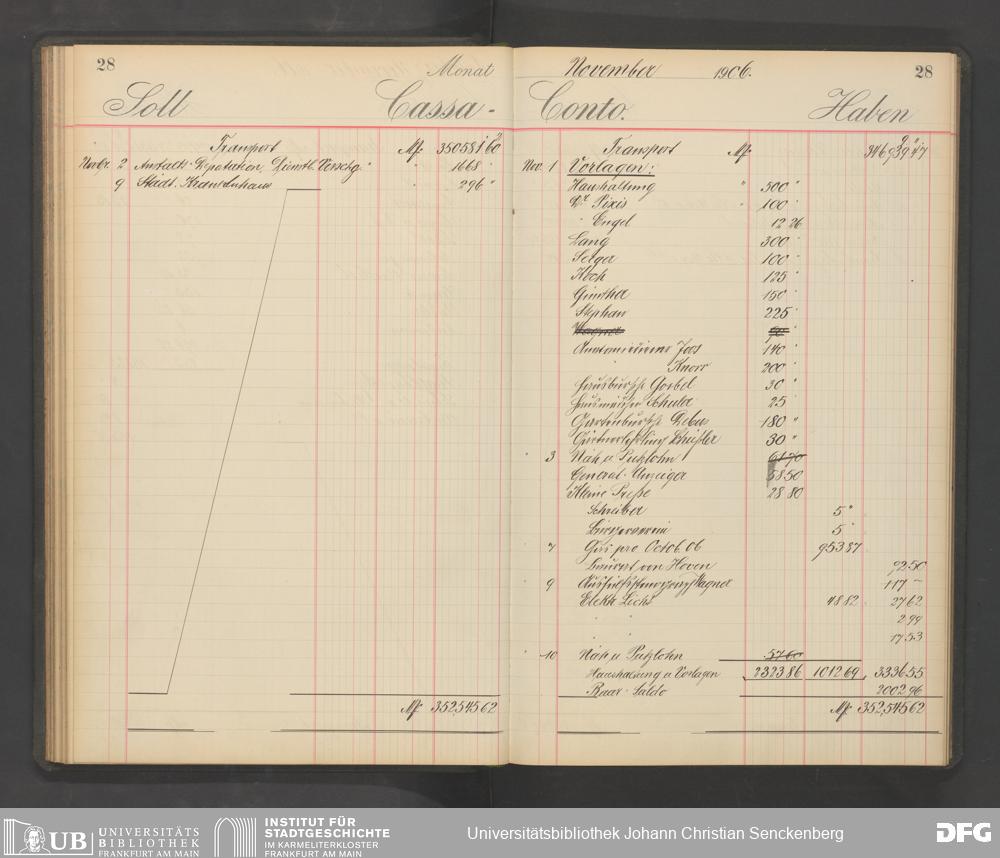 28
Monat
Soll Cassa-
Transport Mk 350581 60
Novbr. 2 Anstalts-Deputation, Dienstb. Verschg. " 1668 "
9 Städt. Krankenhaus " 296 "
Mk 352,545 62
November 1906. 28
Conto. Haben
Transport Mk 346939 47
Nov. 1 Vorlagen:
Haushaltung " 500 "
Dr. Pixis " 100 "
" Engel 12 26
Lang 300 "
Selger 100 "
Koch 125 "
Günther 150 "
Stephan 225 "
Wagner 90 "
Anatomiediener Joos 140 "
" Knorr 200 "
Hausbursche Goebel 30 "
Schuld 25 "
Gartenbursche 180 "
30 "
" 3 Näh u Putzlohn 61 70
General-Anzeiger 58 50
Kleine Presse 28 80
Schreiber 5 "
Bürgerverein 5 "
" 7 Gas pro Octob. 06 953 87
von Hoven 92 50
" 9 Wagner 117 –
Elektr. Licht 48 82 27 62
" " 2 99
" " 17 53
" 10 Näh u Putzlohn 57 60
Haushaltung u Vorlagen 2323 86 1012 69 3336 55
Baar-Saldo 2002 96
Mk 352,545 62
UB UNIVERSITÄTS
BIBLIOTHEK
FRANKFURT AM MAIN
INSTITUT FÜR
STADTGESCHICHTE
IM KARMELITERKLOSTER
FRANKFURT AM MAIN
Universitätsbibliothek Johann Christian Senckenberg
DFG